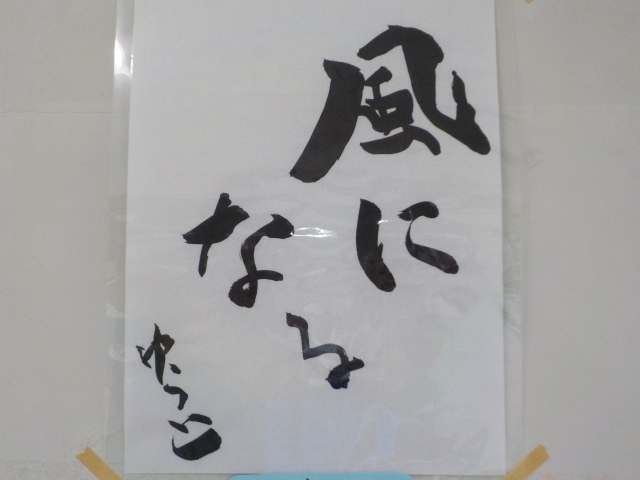 風に
なる
ゆうと